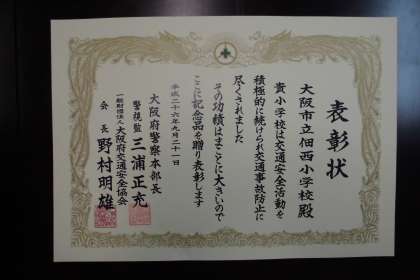 表彰状
大阪市立佃西小学校殿
貴小学校は交通安全活動を
積極的に続けられ交通事故防止に
尽くされました
その功績はまことに大きいので
ここに記念品を贈り表彰します
平成二十六年九月二十一日
大阪府警察本部長
警視監 三浦正充
一般財団法人大阪府交通安全協会
会長 野村明雄